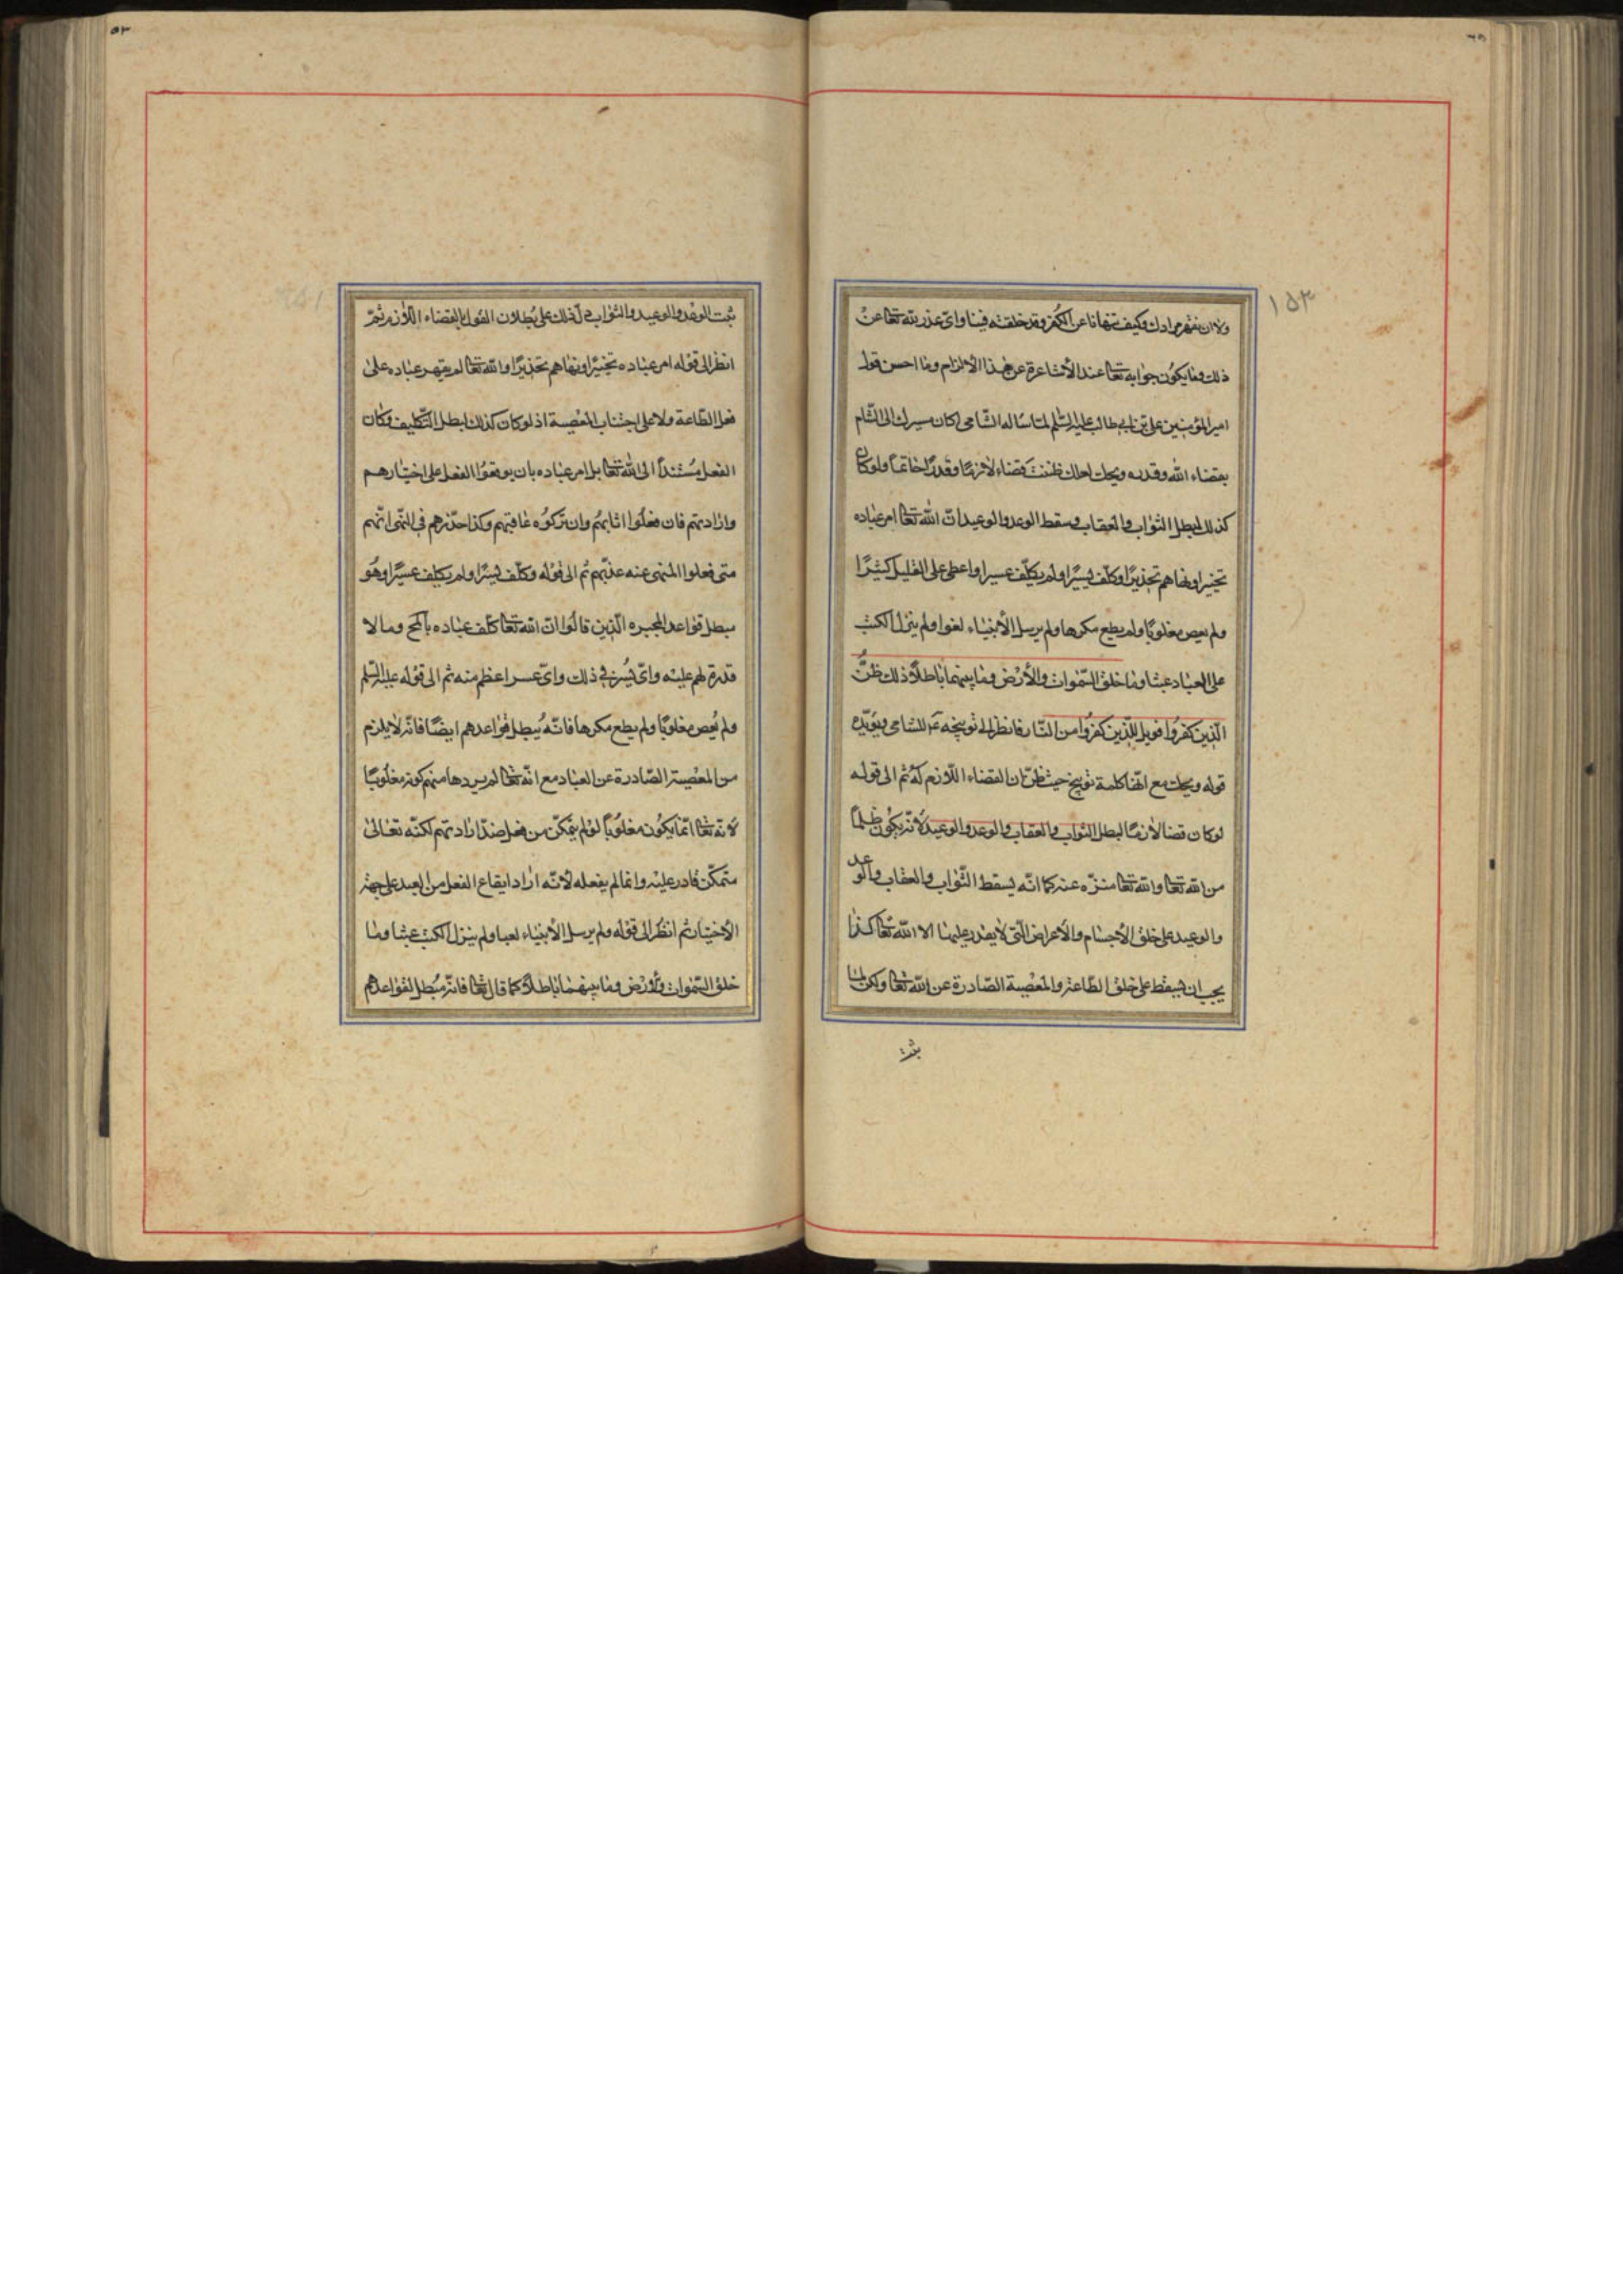 ١٥٣
ولا ان نقهر مرادك وكيف تنهانا عن الكفر وقد خلقته فينا واى عذر لله تعا عن
ذلك وما يكون جوابه تعا عند الأشاعرة عن هذا الالزام وما احسن قول
امير المؤمنين على بن ابى طالب عليه السّلم لما ساله الشّامى اكان مسيرك الى الشّام
بقضاء الله وقدره ويحك لعلك ظننت قضاء لازمًا وقدرًا حاتمًا ولو كان
كذلك لبطل الثواب والعقاب وسقط الوعد والوعيد انّ الله تعا امر عباده
تخييرا ونهاهم تحذيرًا وكلّف يسيرًا ولم يكلّف عسيرا واعطى على القليل كثيرًا
ولم يعص مغلوبًا ولم يطع مكرها ولم يرسل الأنبياء لغوا ولم ينزل الكتب
على العباد عبثا وما خلق السّموات والأرض وما بينهما باطلًا ذلك ظنّ
الّذين كفروا فويل للّذين كفروا من النّار فانظر الى توبيخه عم للشامى ويؤيّده
قوله ويحك مع انّها كلمة توبيخ حيث ظنّ ان القضاء اللّازم له ثم الى قوله
لو كان قضا لازمًا لبطل الثواب والعقاب والوعد والوعيد لانه يكون ظلمًا
من الله تعا والله تعا منزّه عنه كما انّه يسقط الثّواب والعقاب والوعد
والوعيد على خلق الأجسام والأعراض الّتى لا يقدر عليها الا الله تعا كذا
يجب ان يسقط على خلق الطّاعة والمعصية الصّادرة عن الله تعا ولكن لمّا
ثبت
٥٣
ثبت الوعد والوعيد والثواب دلّ ذلك على بطلان القول بالقضاء اللّازم ثمّ
انظر الى قوله امر عباده تخييرًا ونهاهم تحذيرًا والله تعا لم يقهر عباده على
فعل الطّاعة ولا على اجتناب المعصية اذ لو كان كذلك لبطل التّكليف وكان
الفعل مستندًا الى الله تعا بل امر عباده بان يوقعوا الفعل على اختيارهم
وارادتهم فان فعلوا اثابهم وان تركوه عاقبهم وكذا حذّرهم فى النّهى انّهم
متى فعلوا المنهى عنه عذّبهم ثم الى قوله وكلّف يسيرًا ولم يكلف عسيرًا وهو
مبطل قواعد المجبره الّذين قالوا انّ الله تعا كلّف عباده بالمح وما لا
قدرة لهم عليه واىّ يسر فى ذلك واىّ عسر اعظم منه ثم الى قوله عليه السّلم
ولم يعص مغلوبًا ولم يطع مكرها فانّه يبطل قواعدهم ايضًا فانّه لا يلزم
من المعصية الصّادرة عن العباد مع انّه تعا لم يردها منهم كونه مغلوبًا
لانه تعا انّما يكون مغلوبًا لو لم يتمكّن من فعل ضدّ ارادتهم لكنّه تعالى
متمكّن قادر عليه وانما لم يفعله لانّه اراد ايقاع الفعل من العبد على جهة
الأختيار ثم انظر الى قوله ولم يرسل الأنبياء لعبا ولم ينزل الكتب عبثا وما
خلق السّموات والأرض وما بينهما باطلًا كما قال تعا فانّه مبطل لقواعدهم